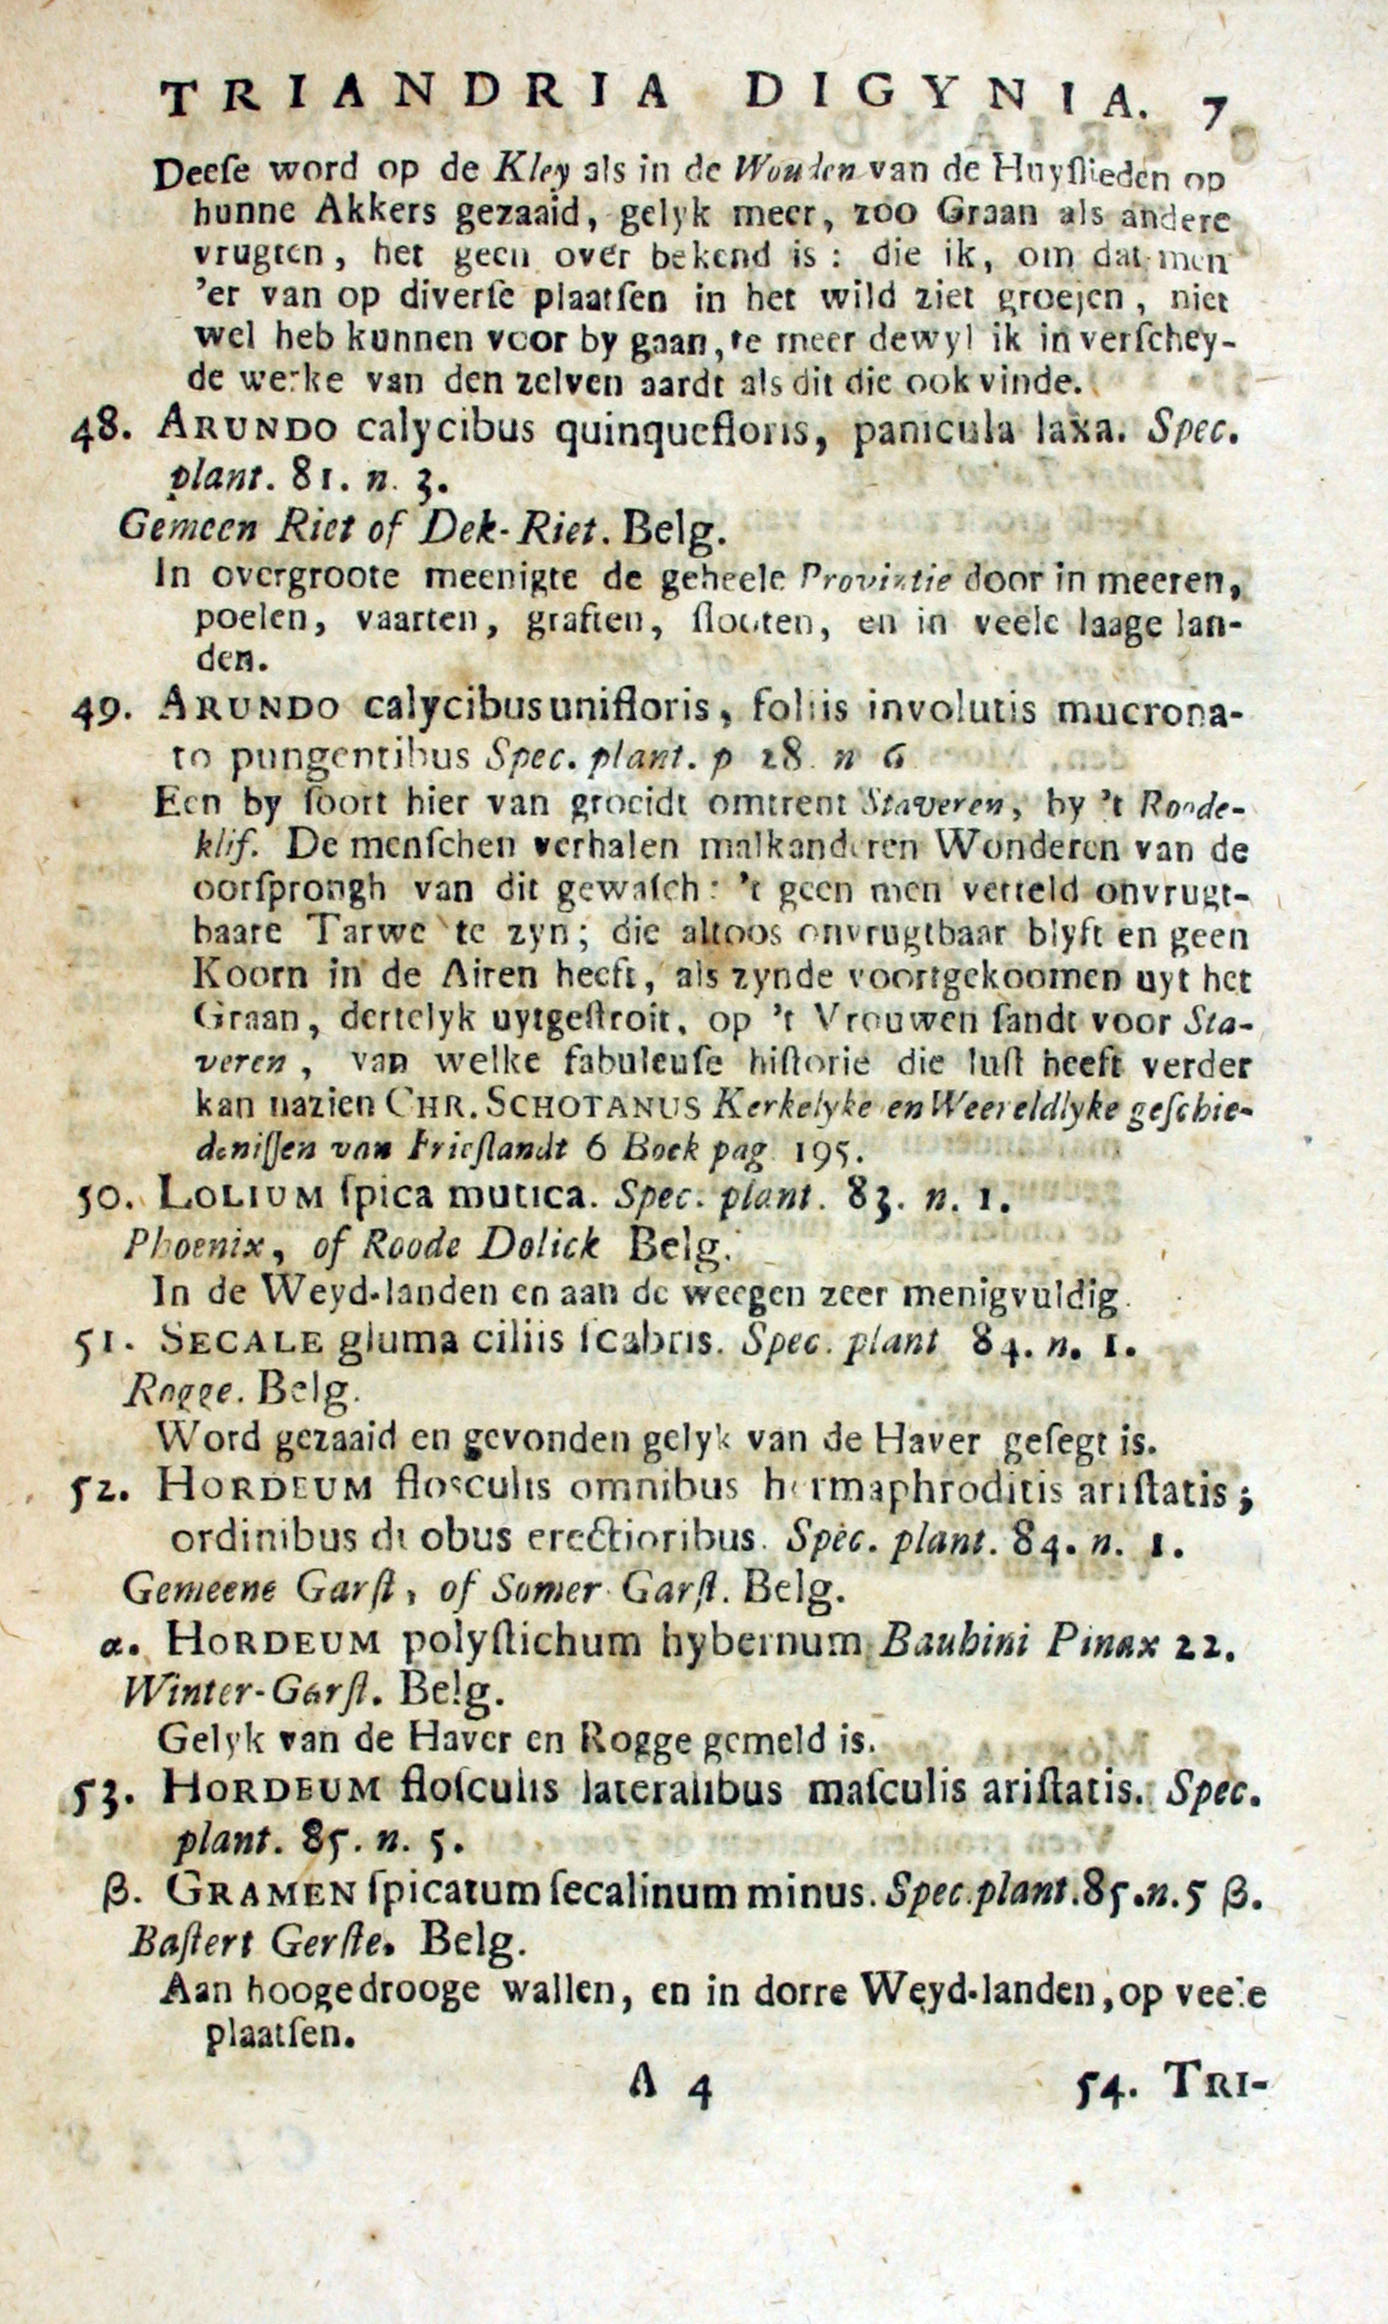 TRIANDRIA DIGYNIA. 7
Deeſe word op de Kley als in de Wouden van de Huyſlieden op
hunne Akkers gezaaid, gelyk meer, zoo Graan als andere
vrugten, het geen over bekend is: die ik, om dat men
'er van op diverſe plaatſen in het wild ziet groejen, niet
wel heb kunnen voor by gaan, te meer dewyl ik in verſchey-
de werke van den zelven aardt als dit die ook vinde.
48. ARUNDO calycibus quinquefloris, panicula laxa. Spec.
plant. 81. n. 3.
Gemeen Riet of Dek-Riet. Belg.
In overgroote meenigte de geheele Provintie door in meeren,
poelen, vaarten, graften, ſlooten, en in veele laage lan-
den.
49. ARUNDO calycibus unifloris, foliis involutis mucrona-
to pungentibus Spec. plant. p 28. n 6
Een by ſoort hier van groeidt omtrent Staveren, by 't Roode-
klif. De menſchen verhalen malkanderen Wonderen van de
oorſprongh van dit gewaſch: 't geen men verteld onvrugt-
baare Tarwe te zyn; die altoos onvrugtbaar blyft en geen
Koorn in de Airen heeft, als zynde voortgekoomen uyt het
Graan, dertelyk uytgeſtroit, op 't Vrouwen ſandt voor Sta-
veren, van welke fabuleuſe hiſtorie die luſt heeft verder
kan nazien CHR. SCHOTANUS Kerkelyke en Weereldlyke geſchie-
deniſſen van Frieſlandt 6 Boek pag. 195.
50. LOLIUM ſpica mutica. Spec. plant. 83. n. 1.
Phoenix, of Roode Dolick Belg.
In de Weyd-landen en aan de weegen zeer menigvuldig.
51. SECALE gluma ciliis ſcabris. Spec. plant 84. n. 1.
Rogge. Belg.
Word gezaaid en gevonden gelyk van de Haver geſegt is.
52. HORDEUM floſculis omnibus hermaphroditis ariſtatis;
ordinibus duobus erectioribus. Spec. plant. 84. n. 1.
Gemeene Garſt, of Somer Garſt. Belg.
α. HORDEUM polyſtichum hybernum Bauhini Pinax 22.
Winter-Garſt. Belg.
Gelyk van de Haver en Rogge gemeld is.
53. HORDEUM floſculis lateralibus maſculis ariſtatis. Spec.
plant. 85. n. 5.
β. GRAMEN ſpicatum ſecalinum minus. Spec. plant. 85. n. 5 β.
Baſtert Gerſte. Belg.
Aan hooge drooge wallen, en in dorre Weyd-landen, op veele
plaatſen.
A 4 54. TRI-